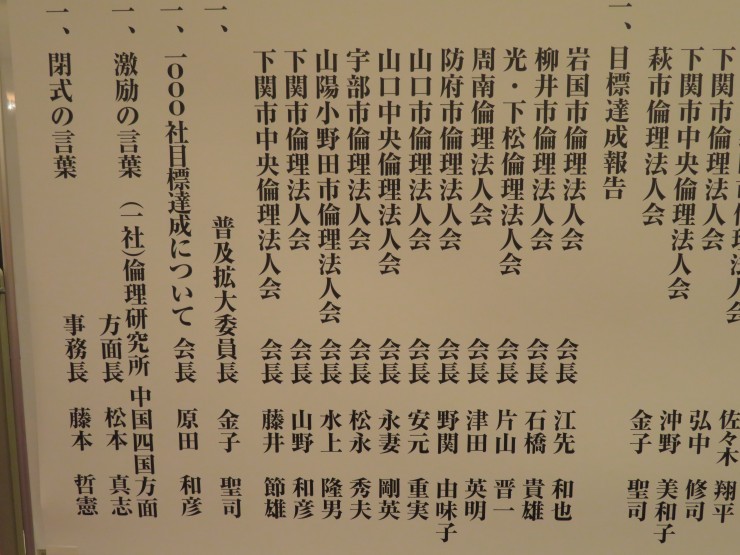 下関市
佐々木 翔平
下関市倫理法人会
弘中 修司
下関市中央倫理法人会
沖野 美和子
萩市倫理法人会
金子 聖司
一、目標達成報告
岩国市倫理法人会 会長 江先 和也
柳井市倫理法人会 会長 石橋 貴雄
光・下松倫理法人会 会長 片山 晋一
周南倫理法人会 会長 津田 英明
防府市倫理法人会 会長 野関 由味子
山口市倫理法人会 会長 安元 重実
山口中央倫理法人会 会長 永妻 剛英
宇部市倫理法人会 会長 松永 秀夫
山陽小野田市倫理法人会 会長 水上 隆男
下関市倫理法人会 会長 山野 和彦
下関市中央倫理法人会 会長 藤井 節雄
一、
普及拡大委員長 金子 聖司
一、一〇〇〇社目標達成について 会長 原田 和彦
一、激励の言葉 (一社)倫理研究所 中国四国方面
方面長 松本 真志
一、閉式の言葉 事務長 藤本 哲憲